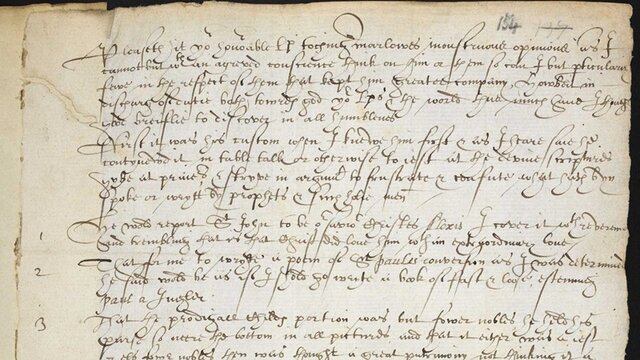 154
Pleaseth it yor honorable Lp tochinge marlowes monstruous opinions as I
cannot but wth an agreved conscience think on him or them so can I but pticulariz
fewe in the respect of them that kept him greater company, Howbeit in
discharg of dutie both towrds god yor Lps & the world thus much haue I thought
good breiflie to discover in all humblenes
First it was his custom when I knewe him first & as I heare saie he
contynewd it in table talk or otherwise to iest at the devine scriptures
gybe at praiers, & stryve in argumt to frustrate & confute what hath byn
spoke or wrytt by prophets & such holie men
1 He wold report St John to be or savior Christes Alexis I cover it wth reverence
and trembling that is that Christ did loue him wth an extraordinary loue
2 That for me to wryte a poem of St paules conversion as I was determined
he said wold be as if I shold go wryte a book of fast & loose, esteeming
Paul a Jugler.
3 That the prodigall Childes portion was but fower nobles, he held his
purse so neere the bottom in all pictures, and that it either was a iest
or els fowr nobles then was thought a great patrimony not thinking it a